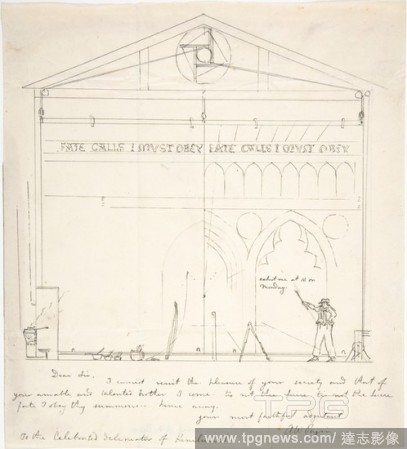 FATE CALLS I MUST OBEY FATE CALLS I MUST OBEY
out at 10 on
Monday
Dear Sir.
I cannot resist the pleasure of your society and that of
your amiable and talented brother I come. tis not the hour tis not the
fate I obey thy summons. hence away.
your most faithful
To the Celebrated Delineator of
TPG
www.tpgnews.com / 達志影像